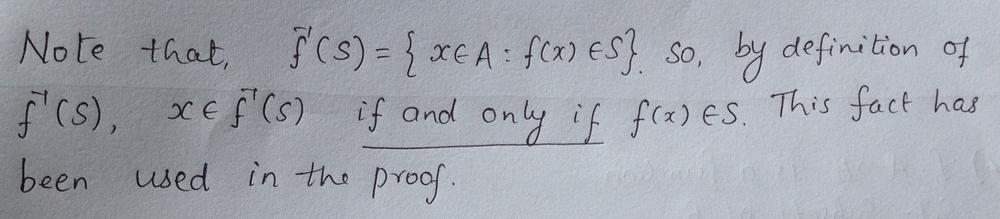 Note that, f⁻¹(S) = { x∈A : f(x) ∈S}. So, by definition of
f⁻¹(S), x ∈ f⁻¹(S) if and only if f(x) ∈S. This fact has
been used in the proof.